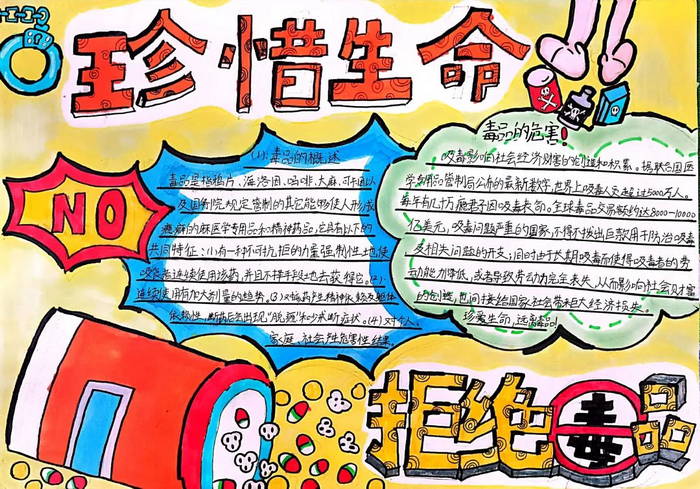 珍惜生命
NO
(1)毒品的概述
毒品是指鸦片、海洛因、吗啡、大麻、可卡因以
及国务院规定管制的其它能够使人形成
瘾癖的麻医学专用品和精神药品,它具有以下的
共同特征:(1)有一种不可抗拒的力量强制性地使
吸食者连续使用该药,并且不择手段地去获得它。(2)
连续使用有加大剂量的趋势。(3)对该药产生精神依赖及躯体
依赖性,断药后会出现"脱瘾"和少戒断症状。(4)对个人、
家庭、社会产生危害性结果。
毒品的危害!
吸毒影响社会经济财富的创造和积累。据联合国医
学专用品管制局公布的最新数字,世界上吸毒人数超过5000万人。
每年有几十万瘾君子因吸毒丧命。全球毒品交易额约达8000-10000
亿美元,吸毒问题严重的国家,不得不拨出巨款用于防治吸毒
及相关问题的开支;同时由于长期吸毒而使得吸毒者的劳
动能力降低,或者导致劳动力完全丧失,从而影响社会财富
的创造,也间接给国家、社会带来巨大经济损失。
珍爱生命,远离毒品!
拒绝毒品